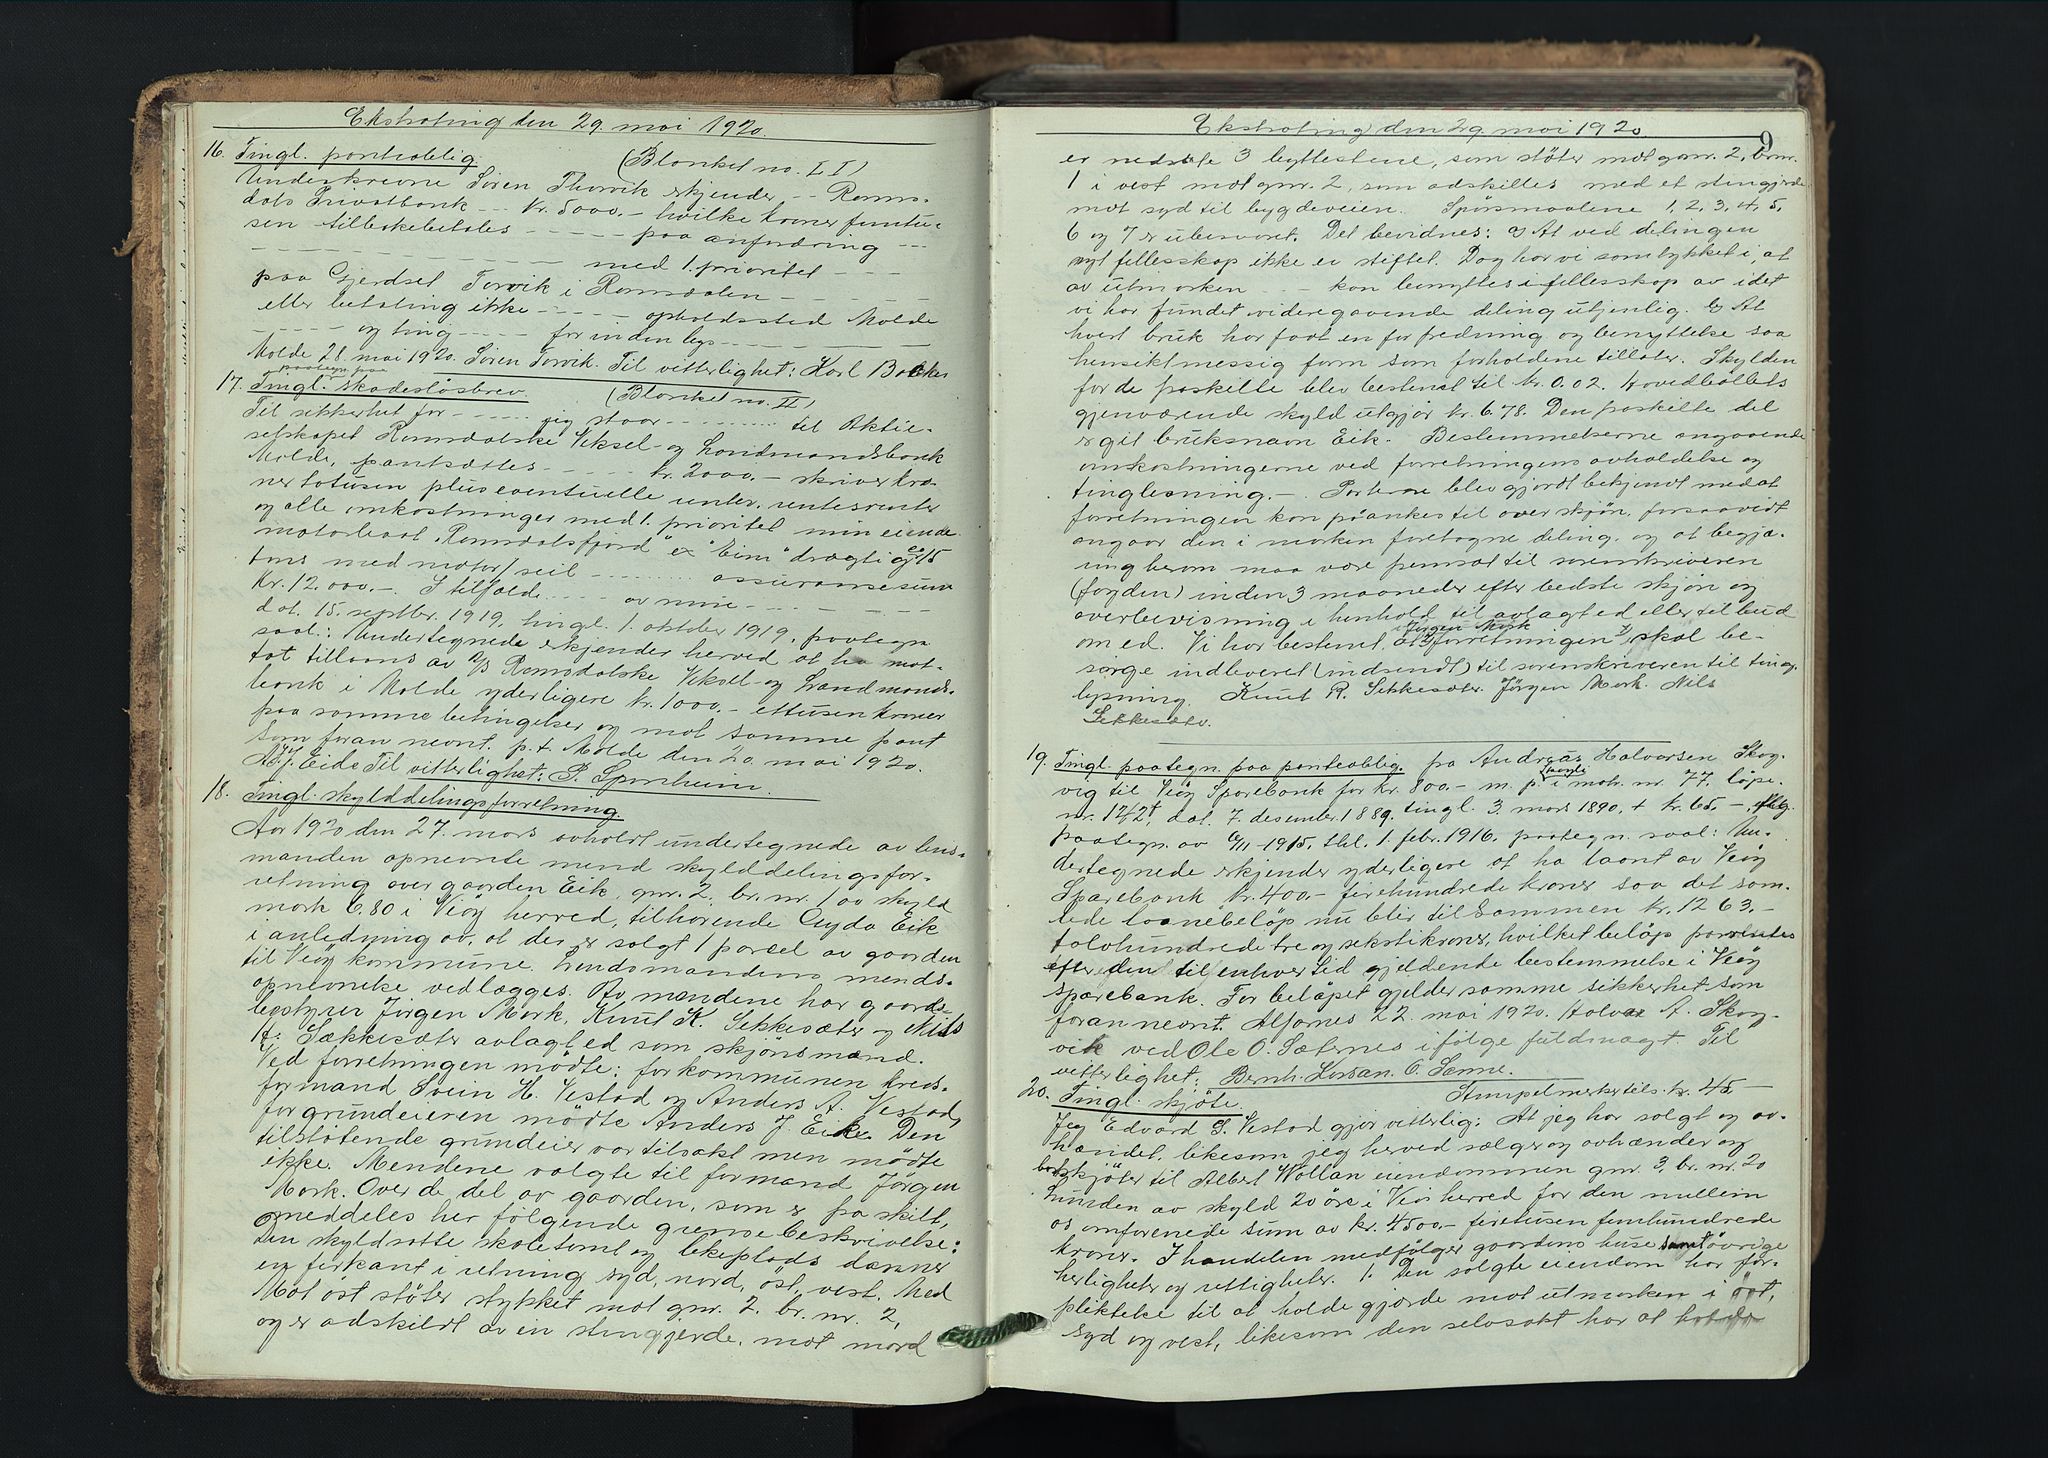 Ekstrating den 29. mai 1920.
16. Tingl. panteoblig. (Blanket no. II)
Underskrevne Søren Thorvik erkjender -- Roms-
dals Privatbank --- Kr. 5000.- hvilke kroner femtu-
sen tilbakebetales ----- paa anfordring ---
---------- med 1. prioritet ----
paa Gjerdset Torvik i Romsdalen ---
eller betaling ikke ----- opholdssted Molde
----- og ting ----- forinden lags ------
Molde 28. mai 1920. Søren Torvik. Til vitterlighet: Karl
paategn. paa
17. Tingl. skadesløsbrev (Blanket no. II)
Til sikkerhet for ----- jeg staar ------- til Aktie-
selskapet Romsdalske Veksel- og Landmandsbank
Molde, pantsættes ----- kr. 2000.- skriver kro-
ner totusen plus eventuelle renter, rentesrenter
og alle omkostninger med 1. prioritet min eiende
motorbaat "Romsdalsfjord" ex "Eim" drægtig ca 15
tons med motor/seil ------- assuransesum
Kr. 12.000.-. I tilfælde ---- av mine -------
dat. 15. septbr. 1919, tingl. 1. oktober 1919, paategn.
saal.: Undertegnede erkjender herved at ha mot-
tat tillaans av A/S Romsdalske Veksel- og Landmands-
bank i Molde yderligere kr. 1000.- ettusen kroner
paa samme betingelser og mot samme pant
som foran nevnt. p.t. Molde den 20. mai 1920.
Eide Til vitterlighet: P. Sponheim.
18. Tingl. skylddelingsforretning.
Aar 1920 den 27. mars avholdt undertegnede av lens-
manden opnevnte mend skylddelingsfor-
retning over gaarden Eik, gnr. 2, br. nr. 1 av skyld
mark 6.80 i Veøy herred, tilhørende Guyda Eik
i anledning av, at der er solgt 1 parsel av gaarden
til Veøy kommune. Lensmandens mends-
opnevnelse vedlægges. Av mændene har gaard-
bestyrer Jørgen Mork, Knut K. Sekkesæter og Nils
Sækkesæter avlagt ed som skjønsmænd.
Ved forretningen mødte: for kommunen kreds-
formand Svein H. Vestad og Anders A. Vestad,
for grundeieren mødte Anders J. Eik. Den
tilstøtende grundeier var tilsakt men mødte
ikke. Mendene valgte til formand Jørgen
Mork. Over de del av gaarden, som er fra skilt,
meddeles her følgende grense beskrivelse:
Den skyldsatte skoletomt og lekeplads danner
en firkant i retning syd, nord, øst, vest. Med
Mot øst støter stykket mot gnr. 2. br. nr. 2,
og er adskildt av en stengjerde, mot nord
Ekstrating den 29 mai 1920
9
er nedsatte 3 byttestene, som støter mot gnr. 2, brnr.
1 i vest mot gnr. 2, som adskilles med et stengjerde
mot syd til bygdeveien. Spørsmaalene 1, 2, 3, 4, 5,
6 og 7 er ubesvaret. Det bevidnes: a) At ved delingen
nyt fellesskap ikke er stiftet. Dog har vi samtykket i, at
av utmarken --- kan benyttes i fellesskap av idet
vi har fundet videregaaende deling utjenlig. b) At
hvert bruk har faat en for fredning og benyttelse saa
hensiktmessig form som forholdene tillater. Skylden
for de fraskille blev bestemt til kr. 0.02. Hovedbøllets
gjenværende skyld utgjør kr. 6.78. Den fraskilte del
er git bruksnavn Eik. Bestemmelserne angaaende
omkostningerne ved forretningens avholdelse og
tinglesning. -. Parterne blev gjordt bekjendt med at
forretningen kan paankes til overskjøn, forsaavidt
angaar den i marken foretagne deling, og at begjæ-
ring herom maa være fremsat til sorenskriveren
(fogden) inden 3 maaneder efter bedste skjøn og
overbevisning i henhold til avlagt ed eller tilbud
om ed. Vi har bestemt, at forretningen skal be-
Jørgen Mork
sørge indleveret (indsendt) til sorenskriveren til ting-
lysning. Knut K. Sekkesæter. Jørgen Mork. Nils
Sekkesæter.
19. Tingl. paategn. paa panteoblig. fra Andreas Halvorsen Skog-
vig til Veøy Sparebank for kr. 800.- m. p. i matr. nr. 77, løpe-
nr. 121, dat. 7. desember 1889, tingl. 3. mars 1890, + kr. 65.-,
paategn. av 6/11-1915, tbl. 1. febr. 1916. paategn. saal: Un-
dertegnede erkjender yderligere at ha laant av Veøy
Sparebank Kr. 400.- firehundrede kroner saa det sam-
lede laanebeløp nu blir tilsammen kr. 1263.-
tolvhundrede tre og sekstikroner, hvilket beløp forrentes
efter den til enhver tid gjeldende bestemmelse i Veøy
sparebank. For beløpet gjelder samme sikkerhet som
foran nevnt. Alfarnes 22. mai 1920. Halvor A. Skog-
vik ved Ole O. Sæternes i følge fuldmagt. Til
vitterlighet: Bernh. Larsan. O. Sænne.
20. Tingl. skjøte. Stempelmerker tils. kr. 45.-
Jeg Edvard S. Vestad gjør vitterlig: At jeg har solgt og av-
hændet, likesom jeg herved sælger og avhænder og
bortskjøter til Albert Wollan eiendommen gnr. 3, br. nr. 20
Lunden av skyld 20 øre i Veø herred for den mellem
os omforenede sum av kr. 4500.- firetusen femhundrede
kroner. I handelen medfølger gaardens huse samt øvrige
herligheter og rettigheter. 1. Den solgte eiendom har for-
pliktelse til at holde gjærde mot utmarken i øst,
syd og vest, likesom den selvsakt har at